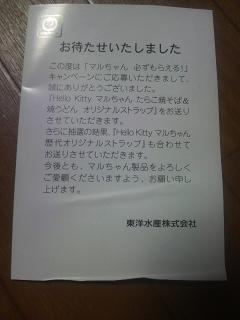 お待たせいたしました
この度は「マルちゃん 必ずもらえる!」
キャンペーンにご応募いただきまして、
誠にありがとうございました。
『Hello Kitty マルちゃん たらこ焼そば&
焼うどん オリジナルストラップ』をお送り
させていただきます。
さらに抽選の結果、『Hello Kitty マルちゃん
歴代オリジナルストラップ』も合わせて
お送りさせていただきます。
今後とも、マルちゃん製品をよろしく
ご愛顧くださいますよう、お願い申し
上げます。
東洋水産株式会社